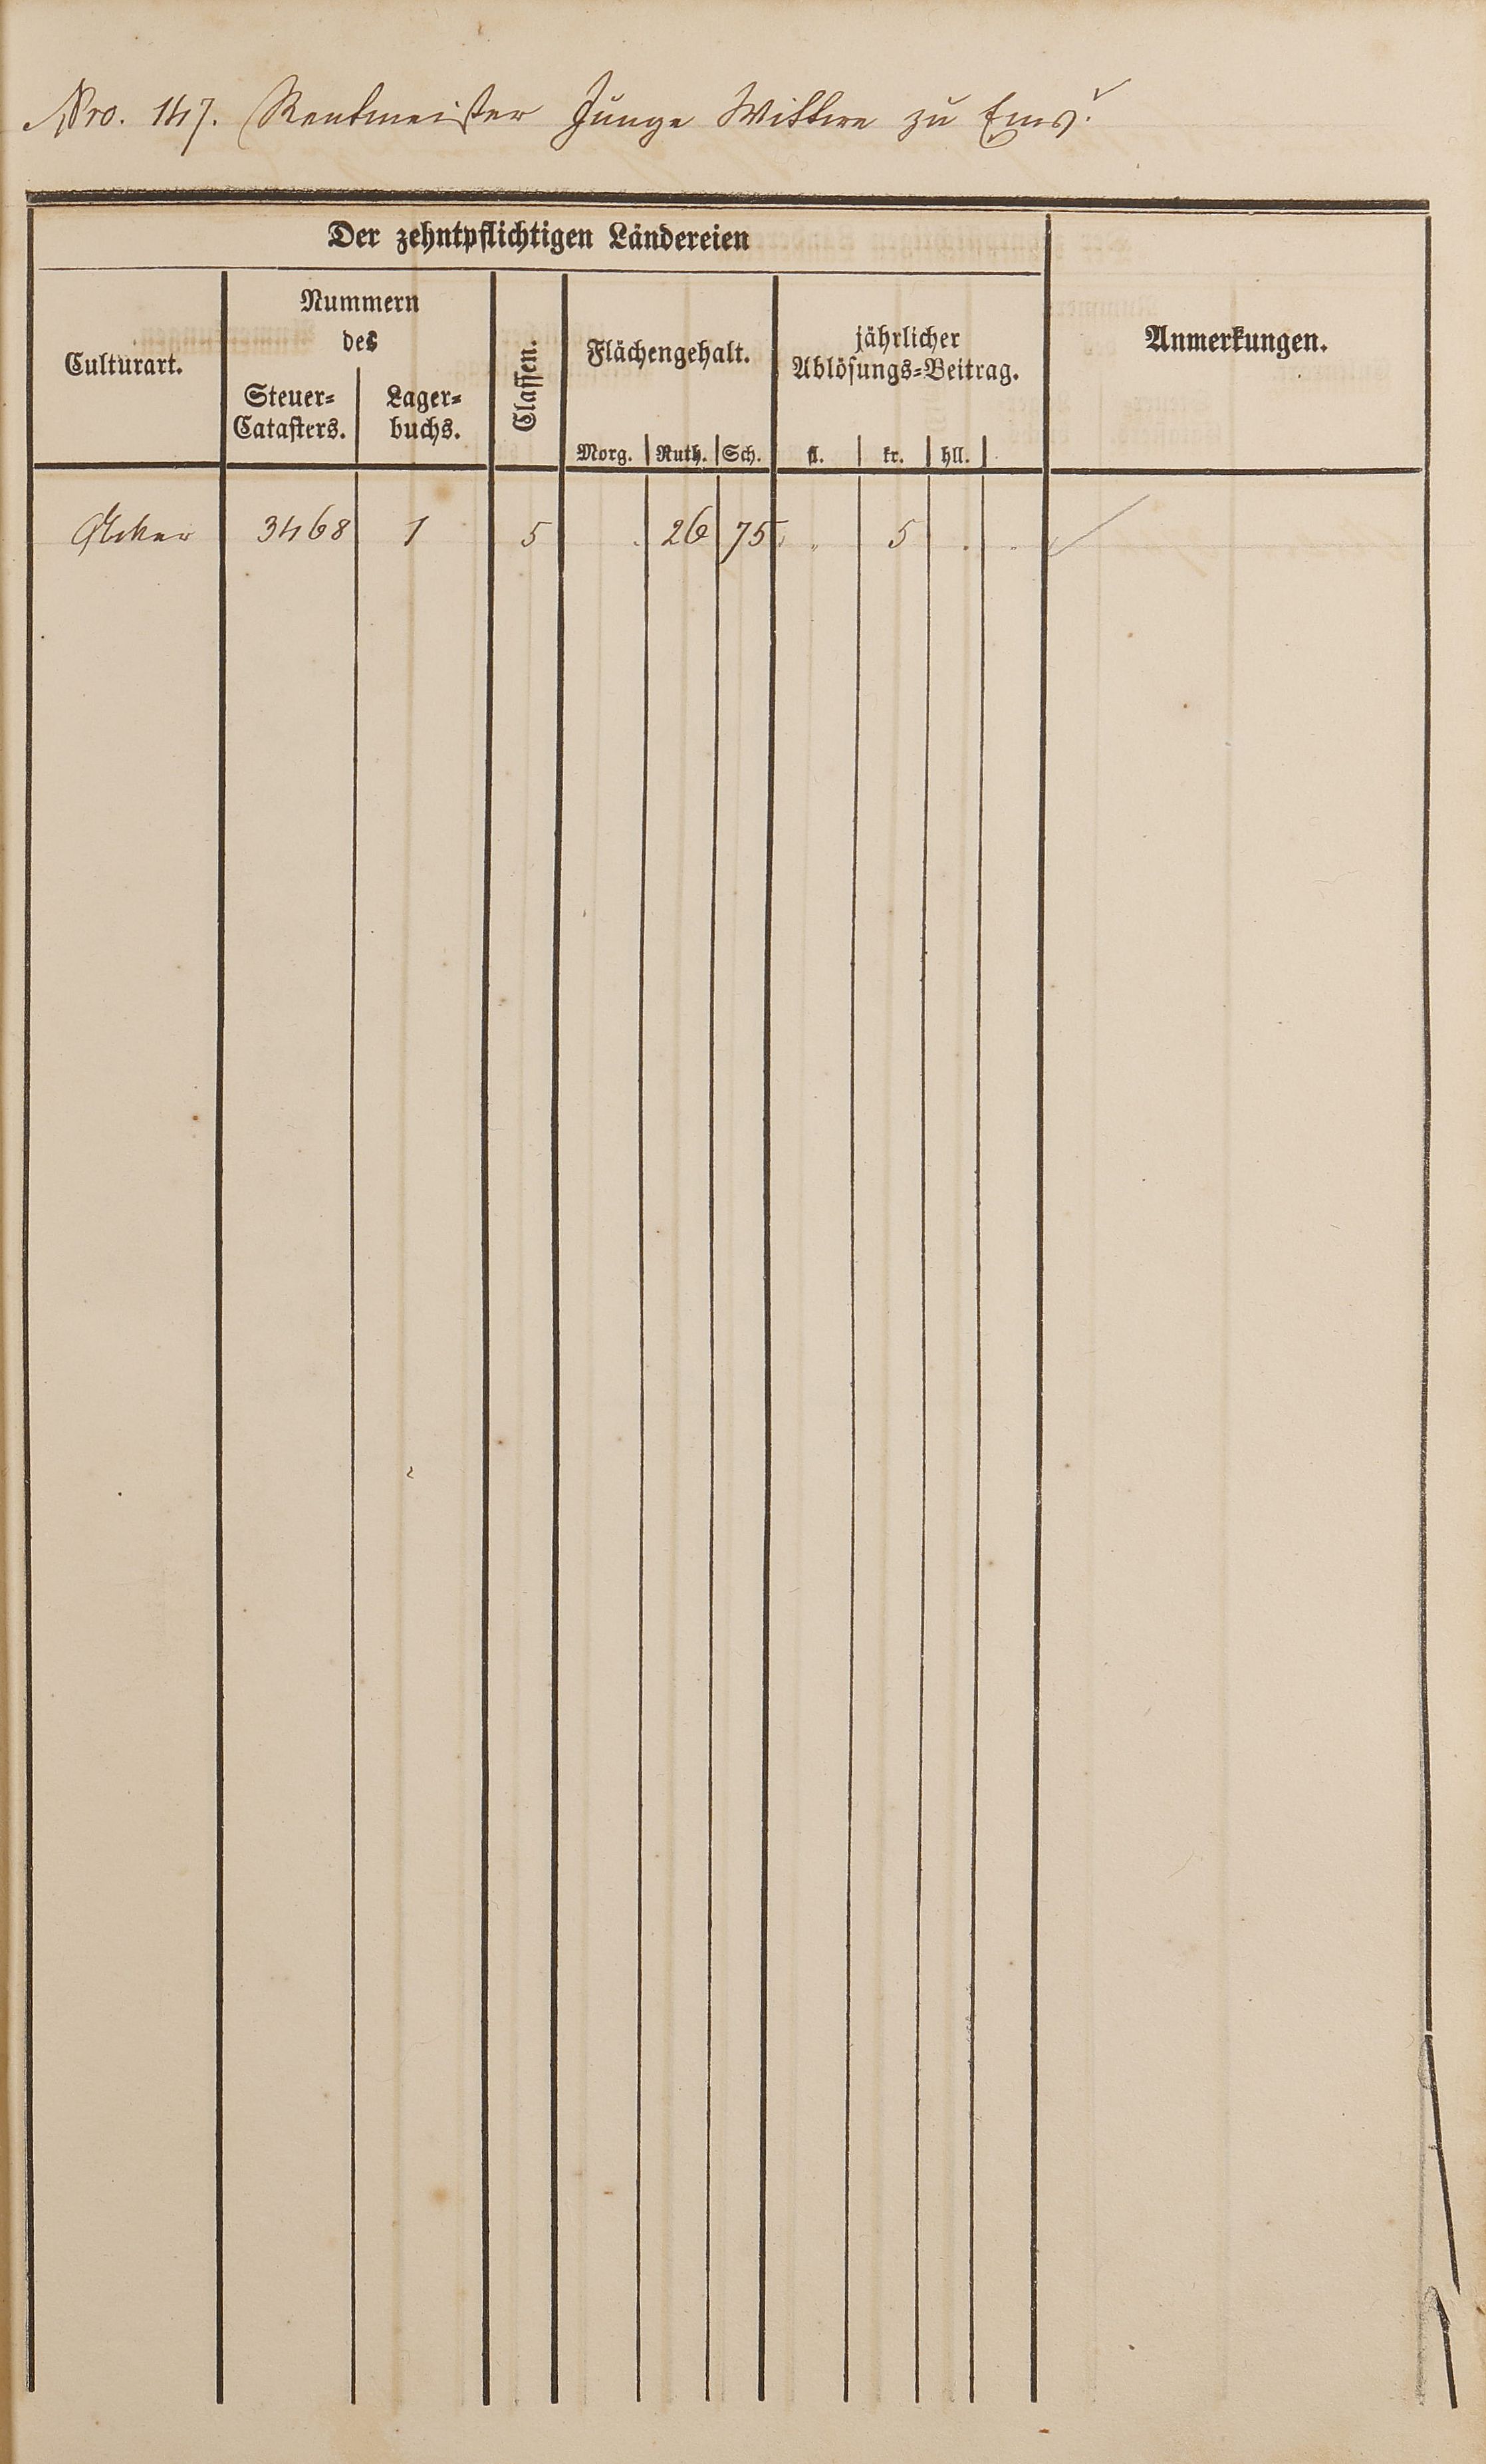 Nro. 147. Rentmeister Junge Wittwe zu Ems.
Der zehntpflichtigen Ländereien
Culturart.
Nummern
des
Steuer=
Catasters.
Lager=
buchs.
Classen.
Flächengehalt.
Morg. Ruth. Sch.
jährlicher
Ablösungs=Beitrag.
fl. kr. hll.
Anmerkungen.
Acker 3468 1 5 . 26 75 " 5 . .